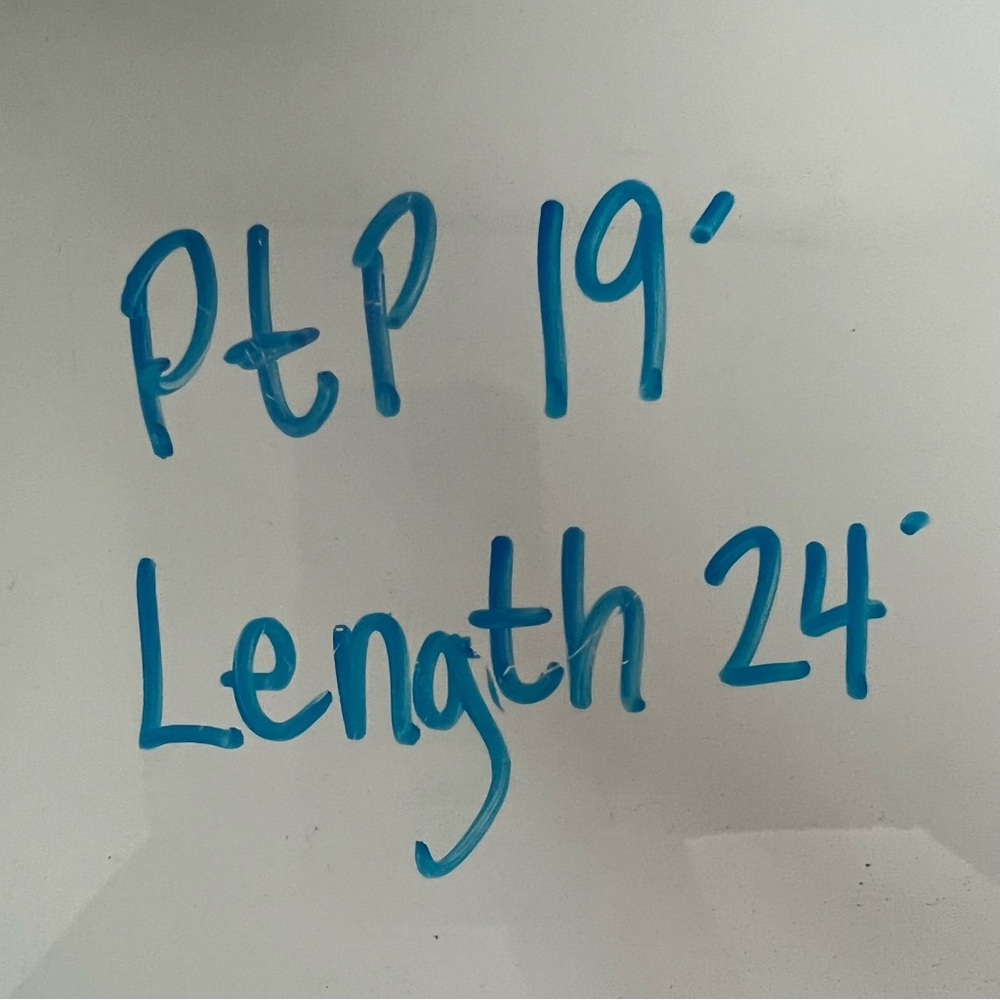 PtP 19'
Length 24'